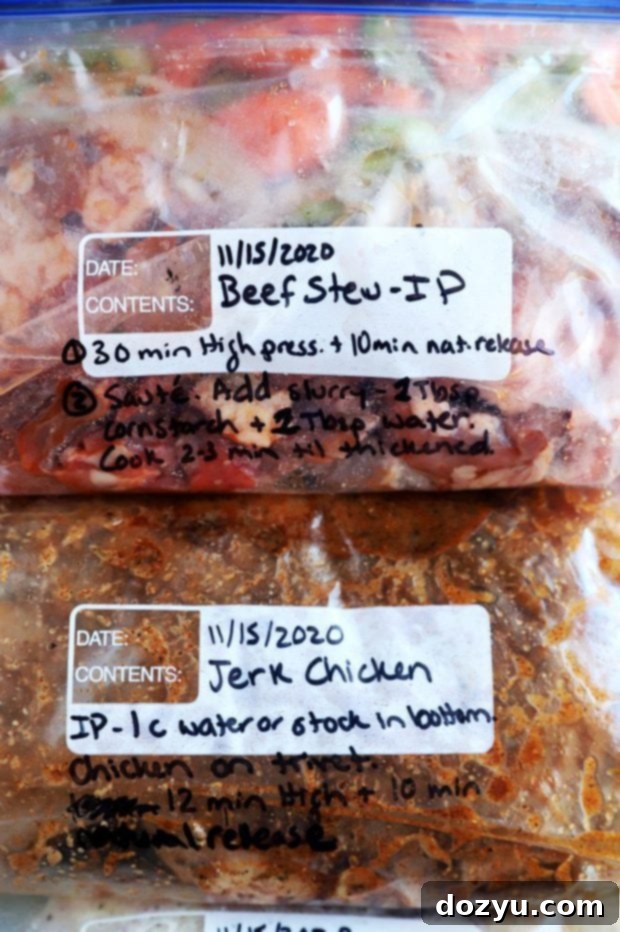 DATE: 11/15/2020
CONTENTS: Beef Stew-IP
① 30 min High press. + 10min nat. release
② Sauté. Add slurry - 2 Tbsp
cornstarch + 2 Tbsp water.
Cook 2-3 min til thickened.
DATE: 11/15/2020
CONTENTS: Jerk Chicken
IP - 1 c water or stock in bottom.
Chicken on trivet.
12 min High + 10 min
natural release
11/15/2020
dozyu.com